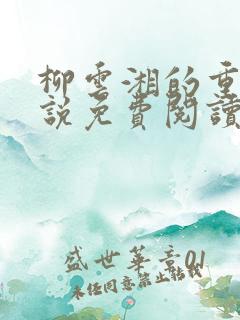 柳雲湘的重
說免費閱讀
盛世華章01
未经同意禁止转载